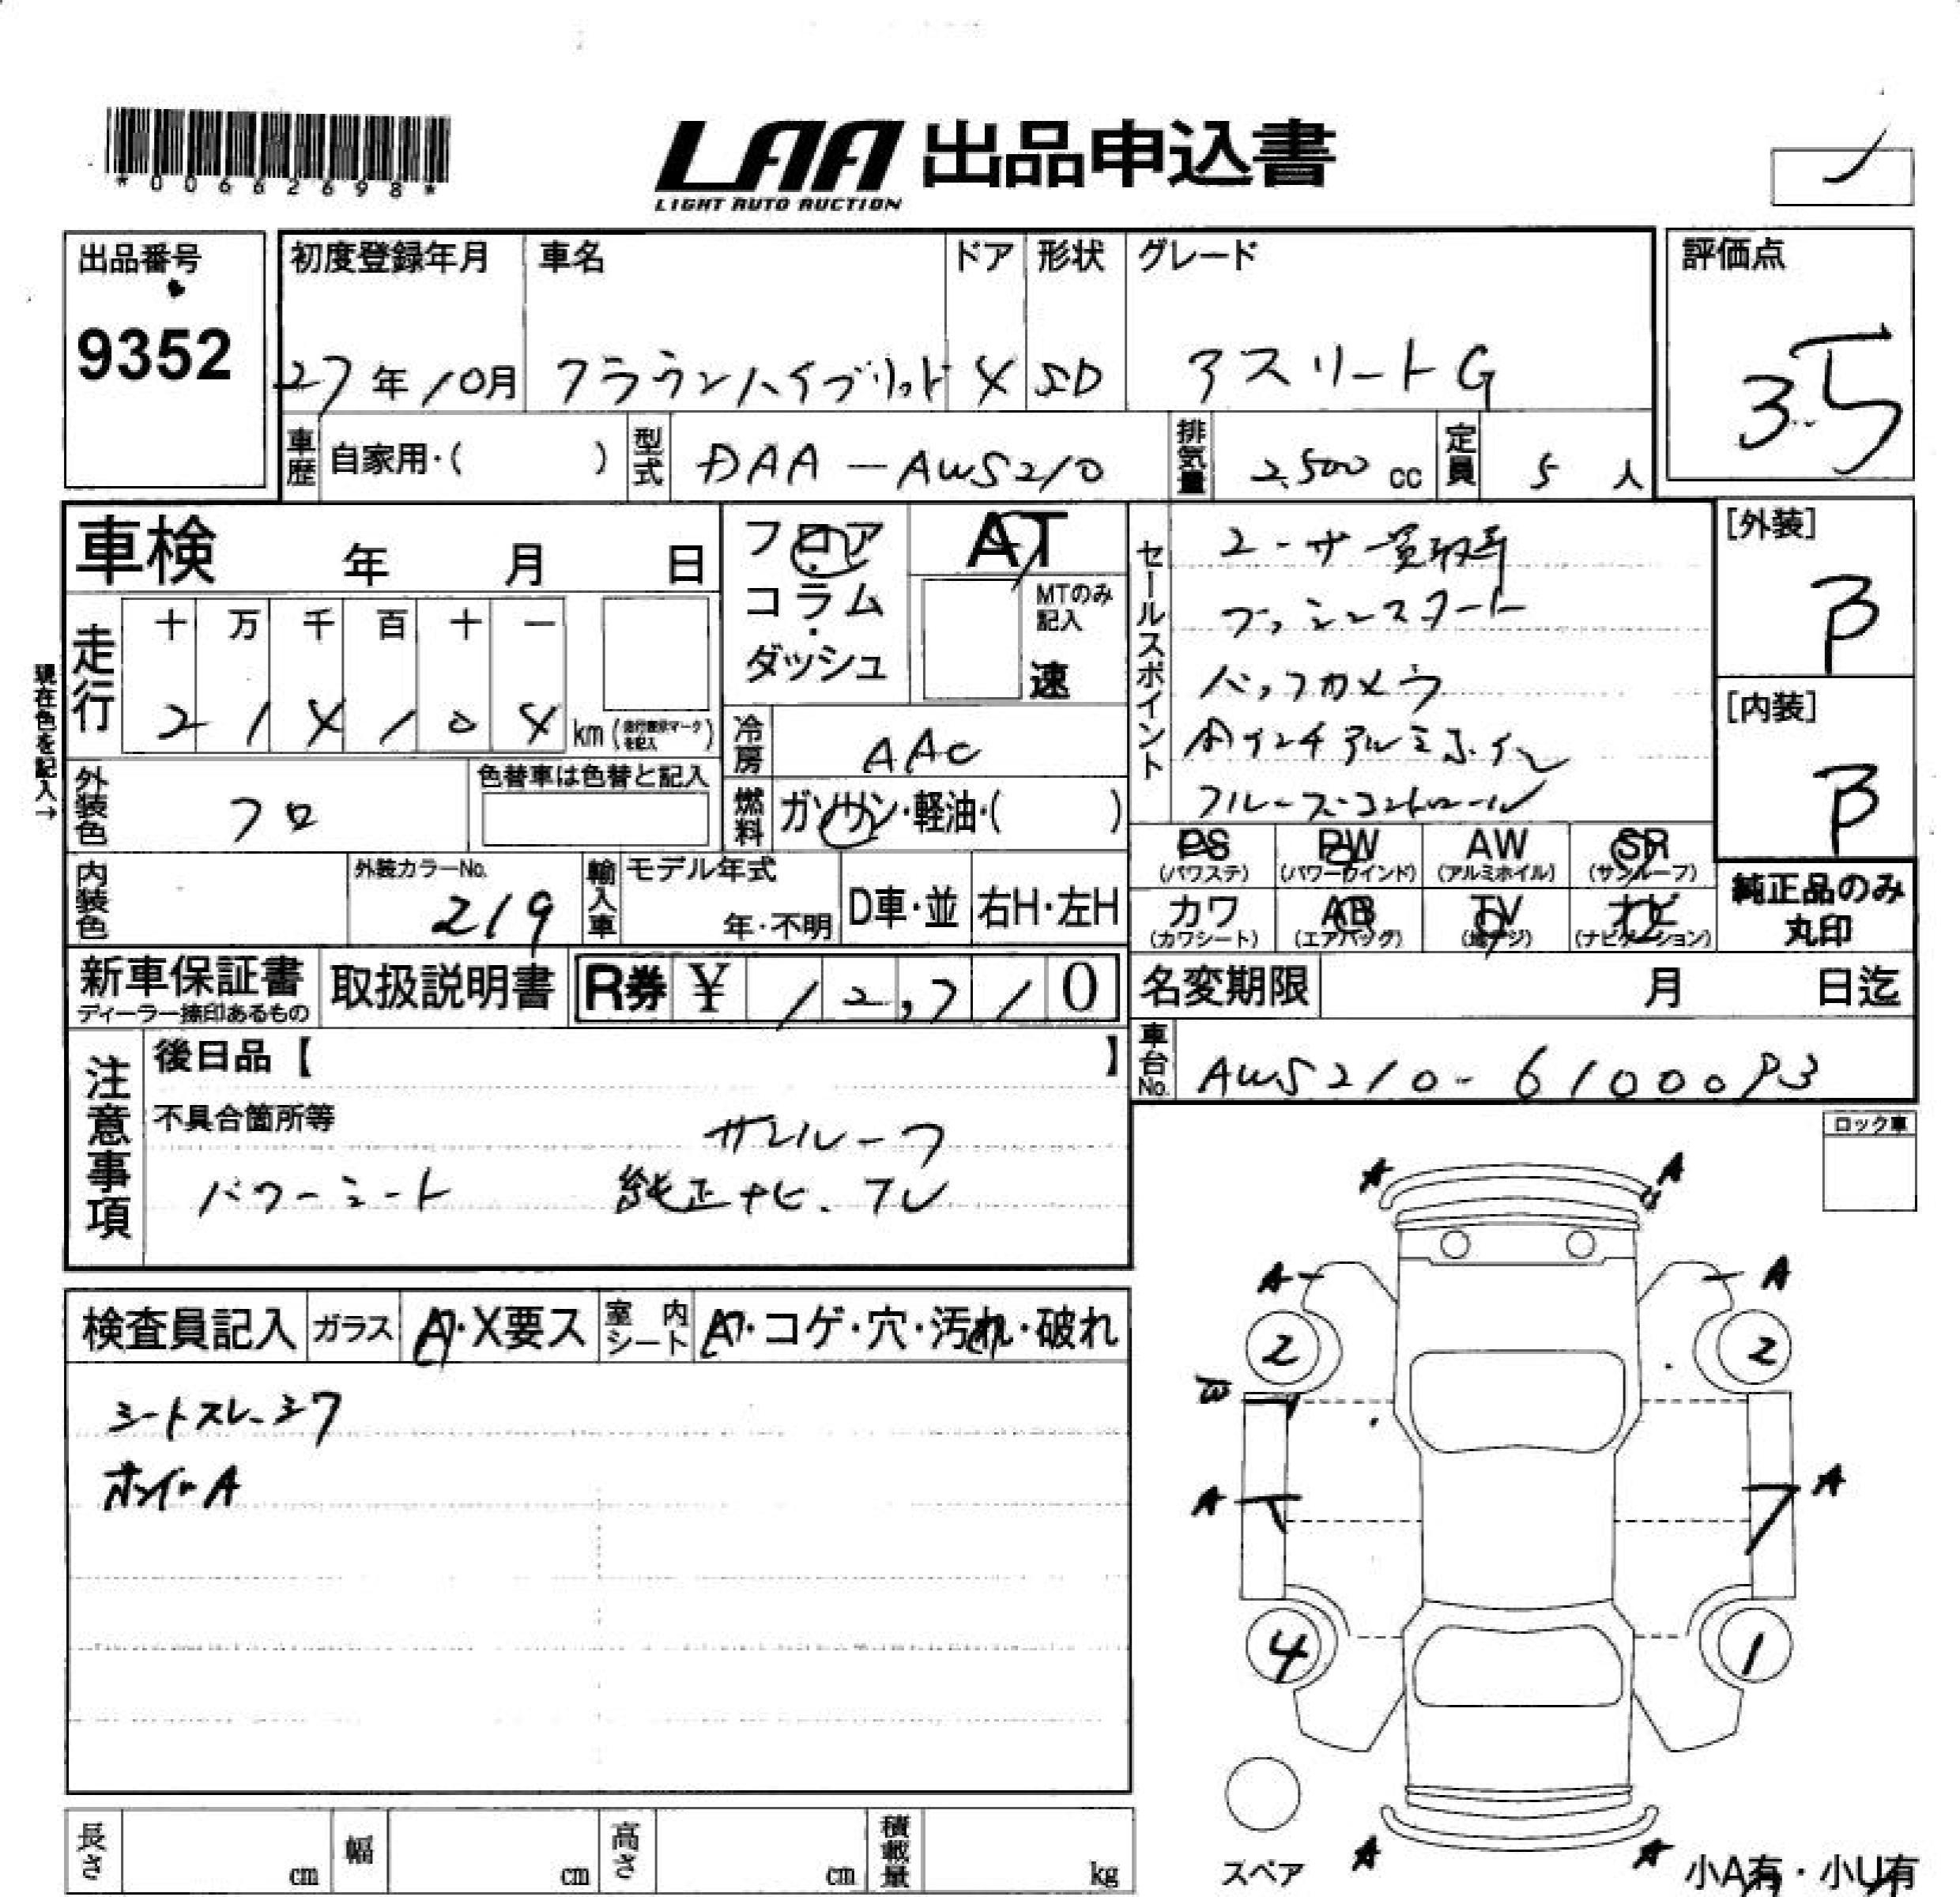 *00662698*
LAA 出品申込書
LIGHT AUTO AUCTION
出品番号
9352
初度登録年月 車名 ドア 形状 グレード
27年10月 クラウンハイブリット 4 SD アスリートG
評価点
3.5
車歴 自家用・( ) 型式 DAA-AWS210 排気量 2,500 cc 定員 5 人
車検 年 月 日
フロア・コラム・ダッシュ
AT
MTのみ記入
速
現在色を記入→
走行 十 万 千 百 十 一
2 1 4 1 0 4 km (走行表示マークを記入)
冷房 AAC
外装色 クロ 色替車は色替と記入
燃料 ガソリン・軽油・( )
セールスポイント
ユーザー買取車
プッシュスタート
バックカメラ
アルミホイル
クルーズコントロール
[外装]
B
[内装]
B
PS (パワステ) PW (パワーウインド) AW (アルミホイル) SR (サンルーフ)
カワ (カワシート) AB (エアバッグ) TV (地デジ) ナビ (ナビゲーション)
純正品のみ丸印
内装色 外装カラーNo. 219 輸入車 モデル年式 年・不明 D車・並 右H・左H
新車保証書 ディーラー捺印あるもの 取扱説明書 R券 ¥ 12,710
名変期限 月 日迄
車台No. AWS210-6100093
注意事項
後日品【 】
不具合箇所等
サンルーフ
パワーシート 純正ナビ.フル
ロック車
検査員記入 ガラス A・X要ス 室内シート A・コゲ・穴・汚れ・破れ
シートスレ、シワ
ホイルA
A A
A A
2 2
A A
4 1
スペア
A A
小A有・小U有
長さ cm 幅 cm 高さ cm 積載量 kg